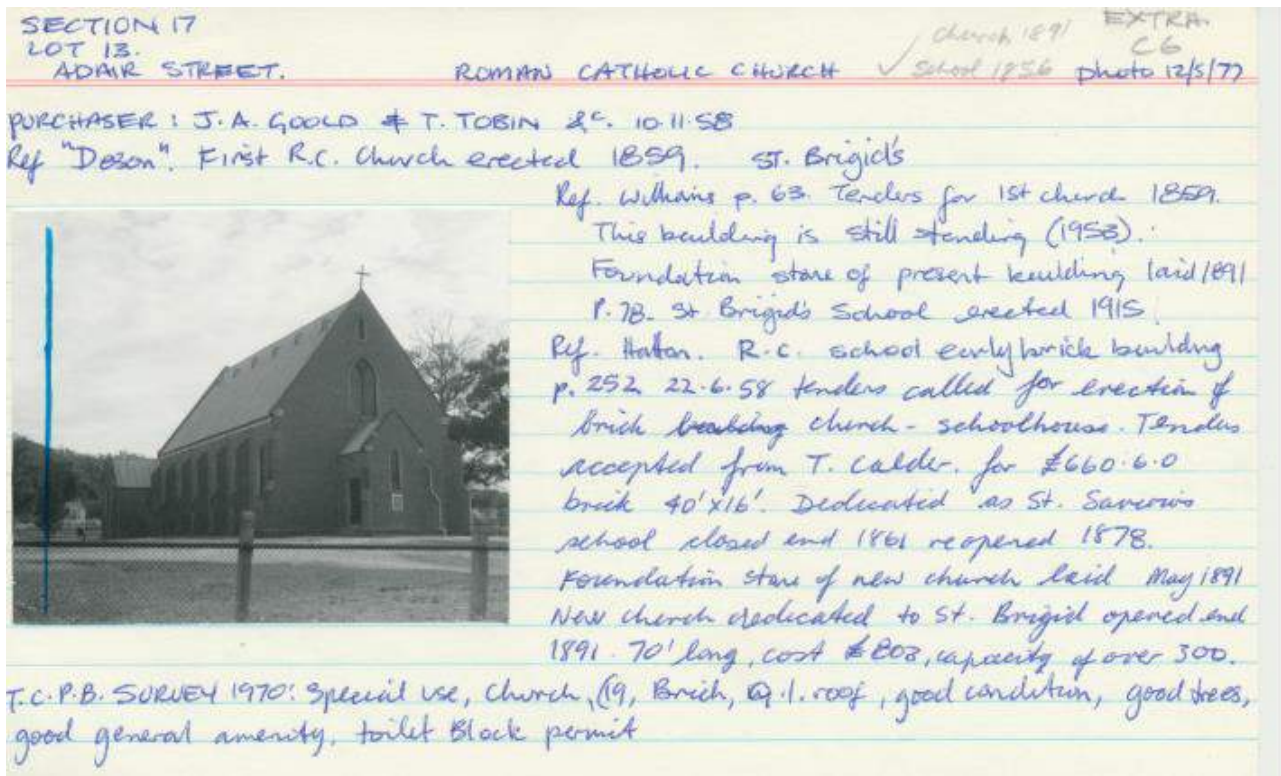 SECTION 17
LOT 13.
ADAIR STREET.
ROMAN CATHOLIC CHURCH
church 1891
✓ School 1856
EXTRA.
C6
photo 12/5/77
PURCHASER: J.A. GOOLD & T. TOBIN &c. 10.11.58
Ref "Deson". First R.C. Church erected 1859. ST. Brigid's
Ref. Williams p. 63. Tenders for 1st church 1859.
This building is still standing (1953).
Foundation stone of present building laid 1891
P. 78. St Brigid's School erected 1915.
Ref. R.C. school early brick building
p. 252 22.6.58 tenders called for erection of
brick building church - schoolhouse. Tenders
accepted from T. Calder. for £660.6.0
brick 40'x16'. Dedicated as St.
school closed end 1861 reopened 1878.
Foundation stone of new church laid May 1891
New church dedicated to St. Brigid opened end
1891. 70' long, cost £803, capacity of over 300.
T.C.P.B. SURVEY 1970: Special use, Church, Brick, G.I. roof, good condition, good trees,
good general amenity, toilet Block permit